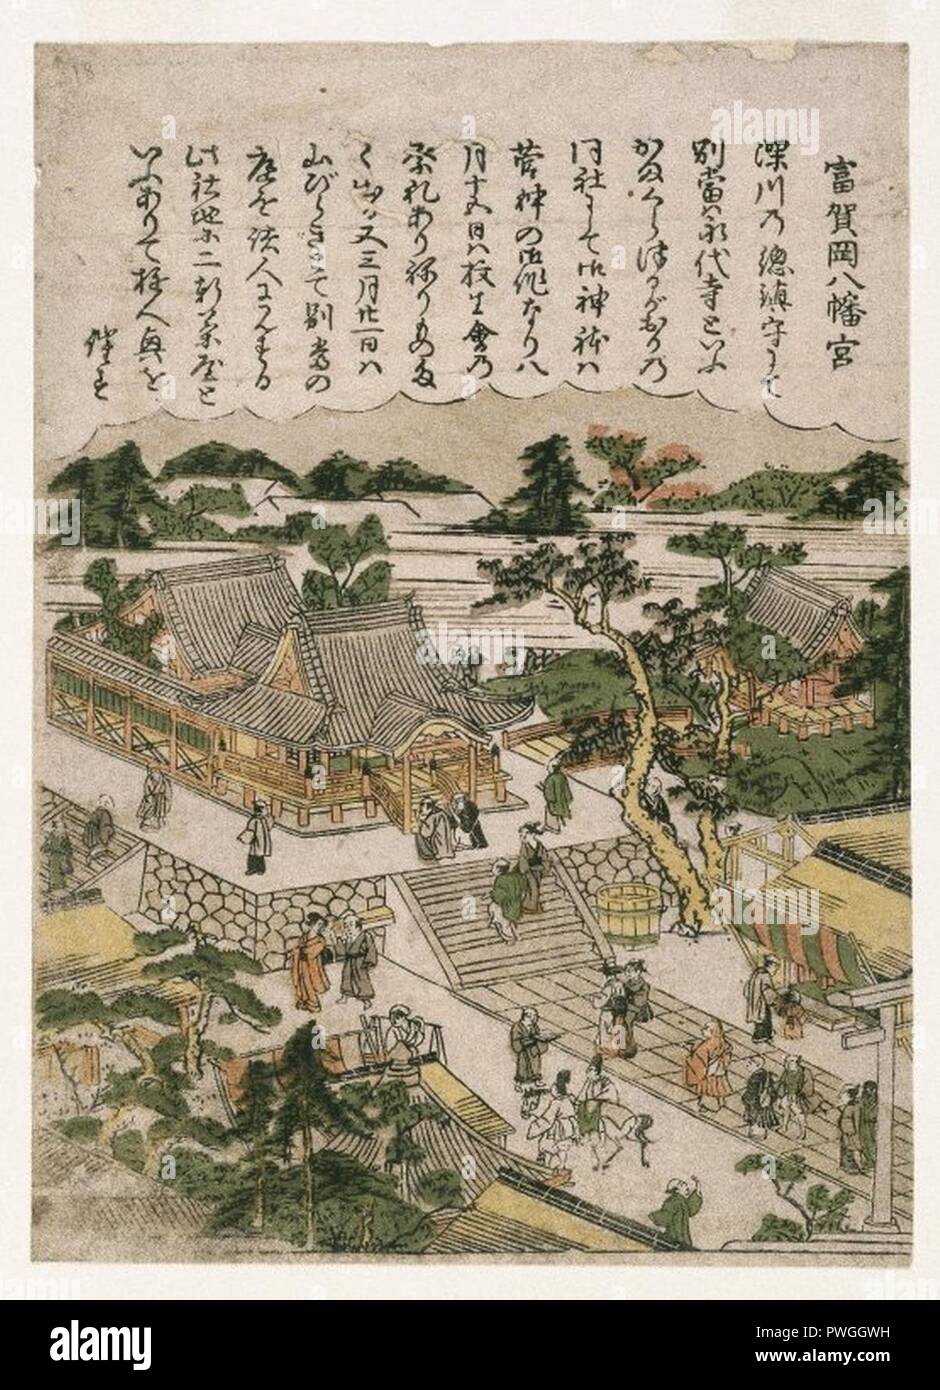 富賀岡八幡宮
深川乃總鎮守にて
別當は永代寺といふ
同社にて御神体は
菅神の御作なり八
月十五日は放生會乃
祭礼ありねりもの多
く出る又三月廿一日は
山びらきにて別當の
庭を諸人に見する
此社地に二軒茶屋と
いふありて
18
alamy
Image ID: PWGGWH
www.alamy.com